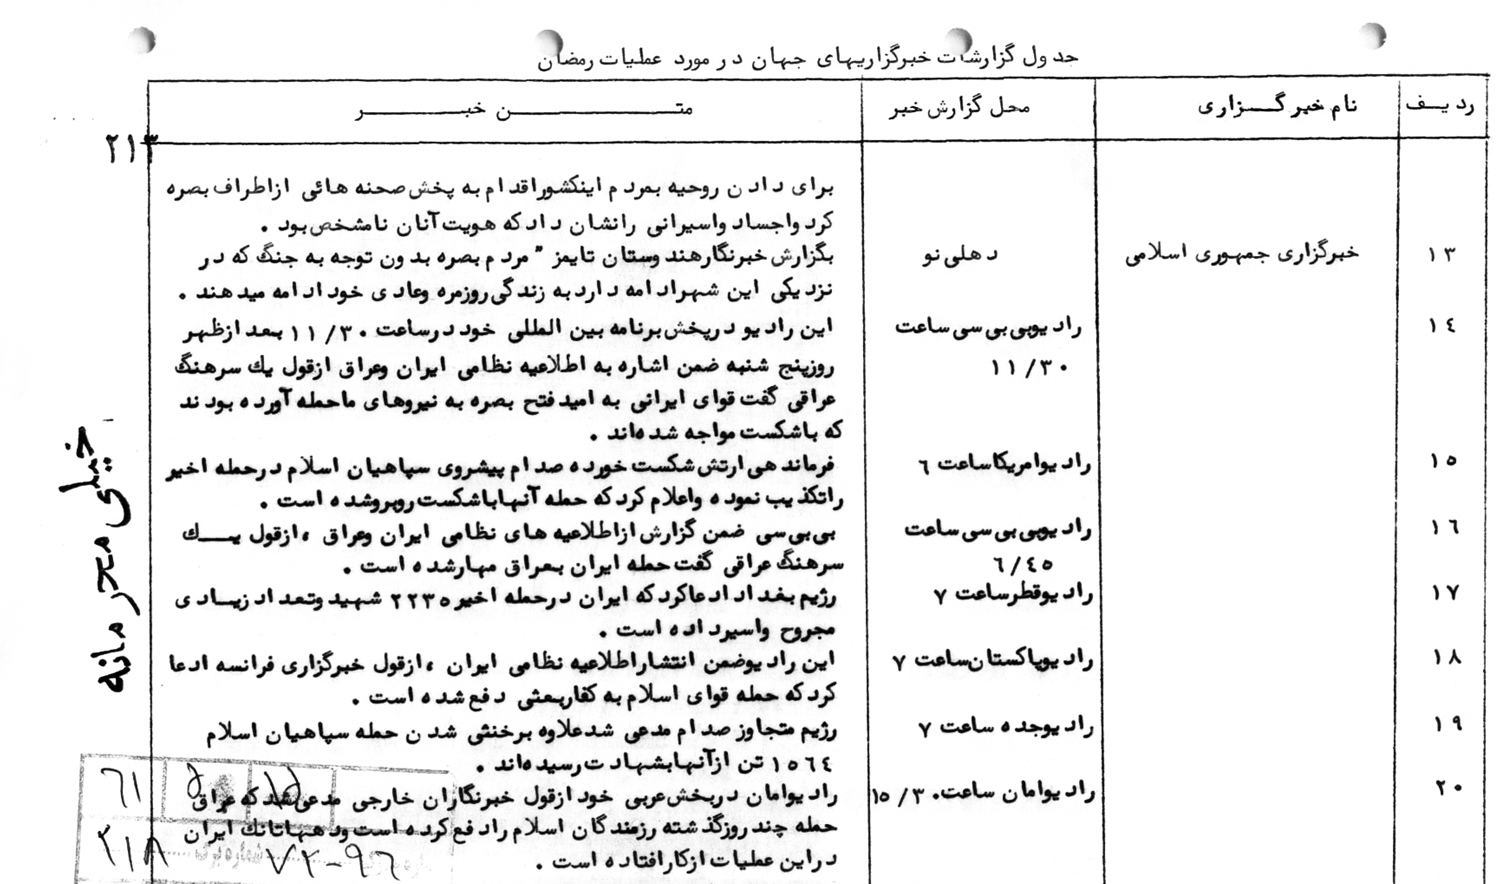 جدول گزارشات خبرگزاریهای جهان در مورد عملیات رمضان
ردیف نام خبرگزاری محل گزارش خبر متن خبر
۲۱۳
برای دادن روحیه بمردم اینکشور اقدام به پخش صحنه هائی از اطراف بصره
کرد و اجساد و اسیرانی را نشان داد که هویت آنان نامشخص بود .
۱۳ خبرگزاری جمهوری اسلامی دهلی نو بگزارش خبرنگار هندوستان تایمز " مردم بصره بدون توجه به جنگ که در
نزدیکی این شهر ادامه دارد به زندگی روزمره و عادی خود ادامه میدهند .
۱٤ رادیو بی بی سی ساعت این رادیو در پخش برنامه بین المللی خود در ساعت ۱۱/۳۰ بعد از ظهر
۱۱/۳۰ روز پنج شنبه ضمن اشاره به اطلاعیه نظامی ایران و عراق از قول یك سرهنگ
عراقی گفت قوای ایرانی به امید فتح بصره به نیروهای ما حمله آورده بودند
که با شکست مواجه شده‌اند .
۱٥ رادیو امریکا ساعت ٦ فرماندهی ارتش شکست خورده صدام پیشروی سپاهیان اسلام در حمله اخیر
را تکذیب نموده و اعلام کرد که حمله آنها با شکست روبرو شده است .
۱٦ رادیو بی بی سی ساعت بی بی سی ضمن گزارش از اطلاعیه های نظامی ایران و عراق ، از قول یك
٦/٤٥ سرهنگ عراقی گفت حمله ایران بعراق مهار شده است .
۱۷ رادیو قطر ساعت ۷ رژیم بغداد ادعا کرد که ایران در حمله اخیر ۲۲۳٥ شهید و تعداد زیادی
مجروح و اسیر داده است .
۱۸ رادیو پاکستان ساعت ۷ این رادیو ضمن انتشار اطلاعیه نظامی ایران ، از قول خبرگزاری فرانسه ادعا
کرد که حمله قوای اسلام به کفار بعثی دفع شده است .
۱۹ رادیو جده ساعت ۷ رژیم متجاوز صدام مدعی شد علاوه بر خنثی شدن حمله سپاهیان اسلام
۱٥٦٤ تن از آنها بشهادت رسیده‌اند .
۲۰ رادیو امان ساعت ۱٥/۳۰ رادیو امان در بخش عربی خود از قول خبرنگاران خارجی مدعی شد که عراق
حمله چند روز گذشته رزمندگان اسلام را دفع کرده است و دهها تانك ایران
در این عملیات از کار افتاده است .
خیلی محرمانه
۶۱
۲۱۸
۷۲-۹۶
شماره برگ